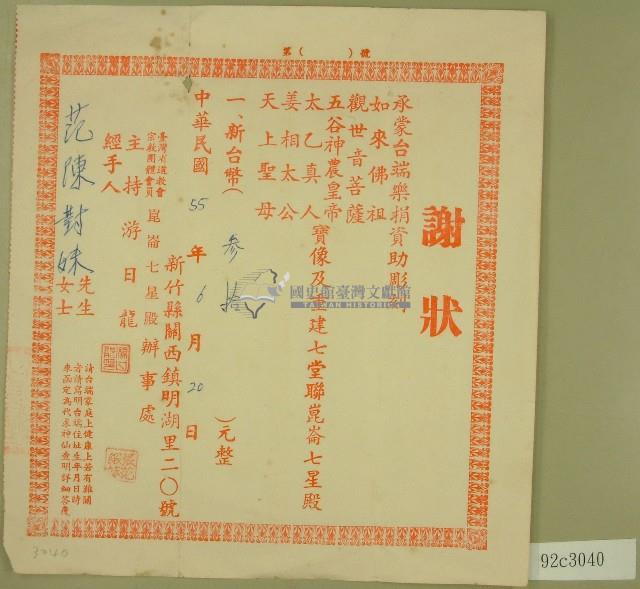 第（　）號
謝狀
承蒙台端樂捐資助彫刻
如來佛祖
觀世音菩薩
五谷神農皇帝
太乙真人
姜相太公
天上聖母
寶像及重建七堂聯崑崙七星殿
一、新台幣（參拾）元整
中華民國55年6月20日
新竹縣關西鎮明湖里二〇號
臺灣省道教會
宗教團體會員
崑崙七星殿辦事處
主持游日龍
經手人
范陳對妹
先生
女士
請台端家庭上健康上若有難關
者請寫明台端住址生年月日時
來函定為代求神仙查明詳細答覆
國史館臺灣文獻館
TAIWAN HISTORICA
3040
92c3040